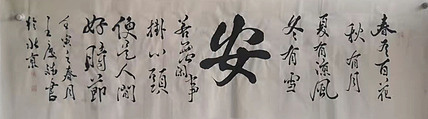 春有百花
秋有月
夏有涼風
冬有雪
安
若無閑事
掛心頭
便是人間
好時節
壬寅之春月
王
書
於北京